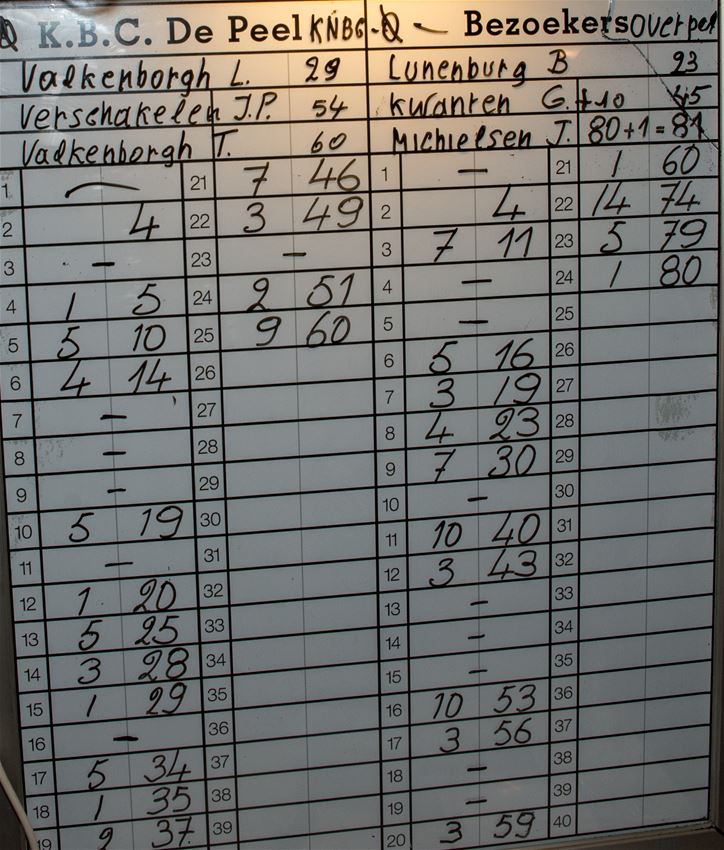 K.B.C. De Peel KNBG - Bezoekers Overpel
Valkenborgh L. 29 Lunenburg B 23
Verschakelen J.P. 54 Kwanten G. +10 45
Valkenborgh T. 60 Michielsen J. 80+1=81
1 — 21 7 46 1 — 21 1 60
2 4 22 3 49 2 4 22 14 74
3 — 23 — 3 7 11 23 5 79
4 1 5 24 2 51 4 — 24 1 80
5 5 10 25 9 60 5 — 25
6 4 14 26 6 5 16 26
7 — 27 7 3 19 27
8 — 28 8 4 23 28
9 — 29 9 7 30 29
10 5 19 30 10 — 30
11 — 31 11 10 40 31
12 1 20 32 12 3 43 32
13 5 25 33 13 — 33
14 3 28 34 14 — 34
15 1 29 35 15 — 35
16 — 36 16 10 53 36
17 5 34 37 17 3 56 37
18 1 35 38 18 — 38
19 2 37 39 19 — 39
20 3 59 40